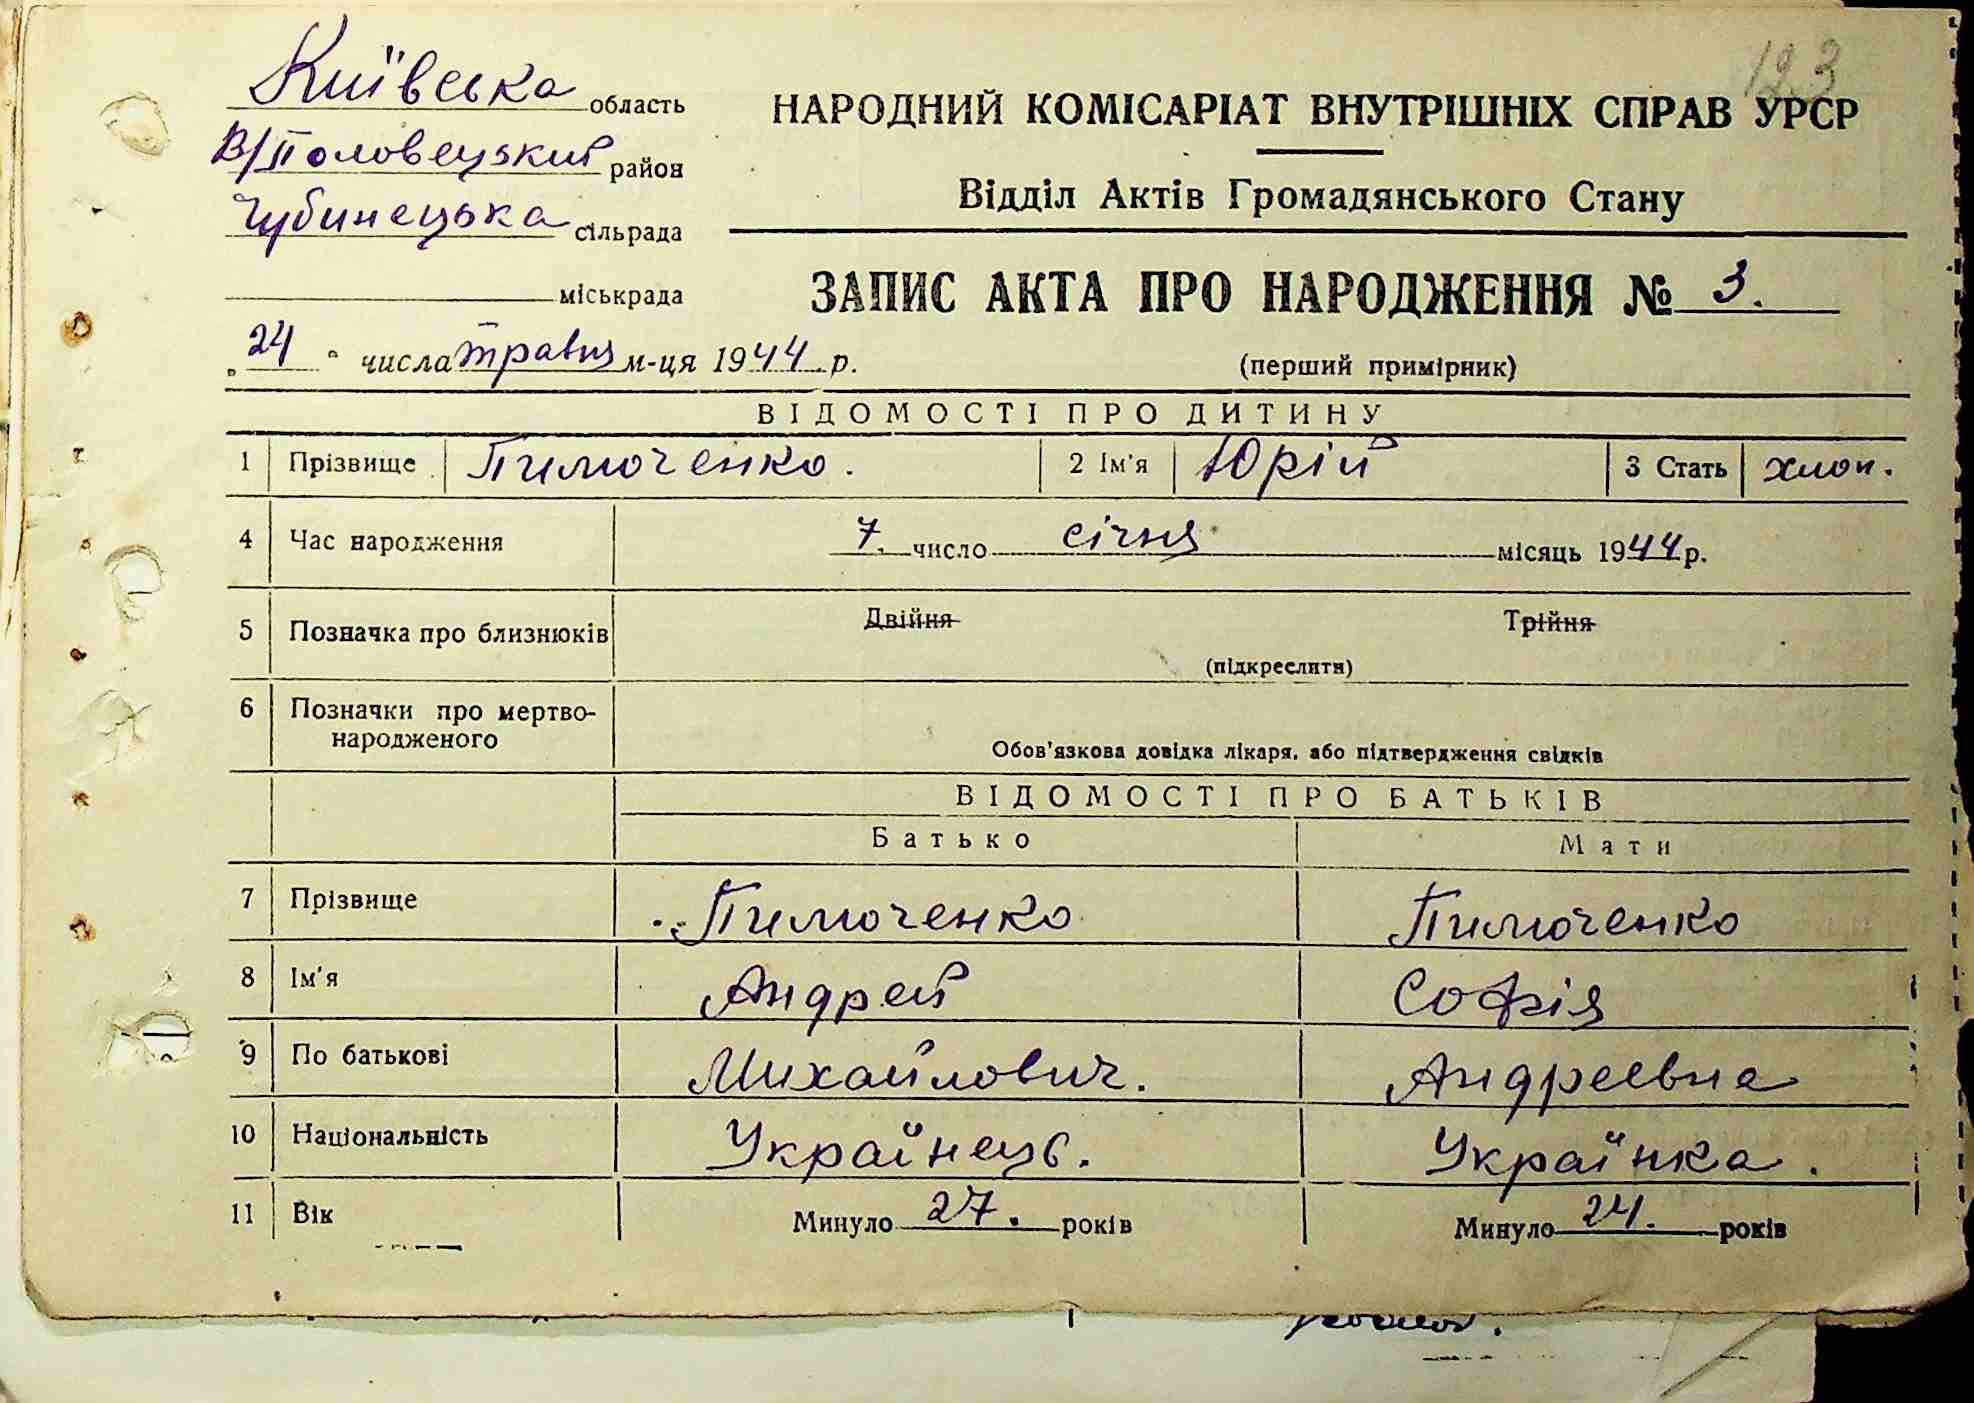 123
Київська область
НАРОДНИЙ КОМІСАРІАТ ВНУТРІШНІХ СПРАВ УРСР
В/Половецький район
Відділ Актів Громадянського Стану
Чубинецька сільрада
міськрада
ЗАПИС АКТА ПРО НАРОДЖЕННЯ № 3.
„24" числа травня м-ця 1944 р.
(перший примірник)
ВІДОМОСТІ ПРО ДИТИНУ
1 Прізвище Пимоченко. 2 Ім'я Юрій 3 Стать хлоп.
4 Час народження 7. число січня місяць 1944 р.
5 Позначка про близнюків Двійня Трійня
(підкреслити)
6 Позначки про мертво-
народженого
Обов'язкова довідка лікаря, або підтвердження свідків
ВІДОМОСТІ ПРО БАТЬКІВ
Батько Мати
7 Прізвище Пимоченко Пимоченко
8 Ім'я Андрей Софія
9 По батькові Михайлович. Андреевна
10 Національність Українець. Українка.
11 Вік Минуло 27. років Минуло 24. років